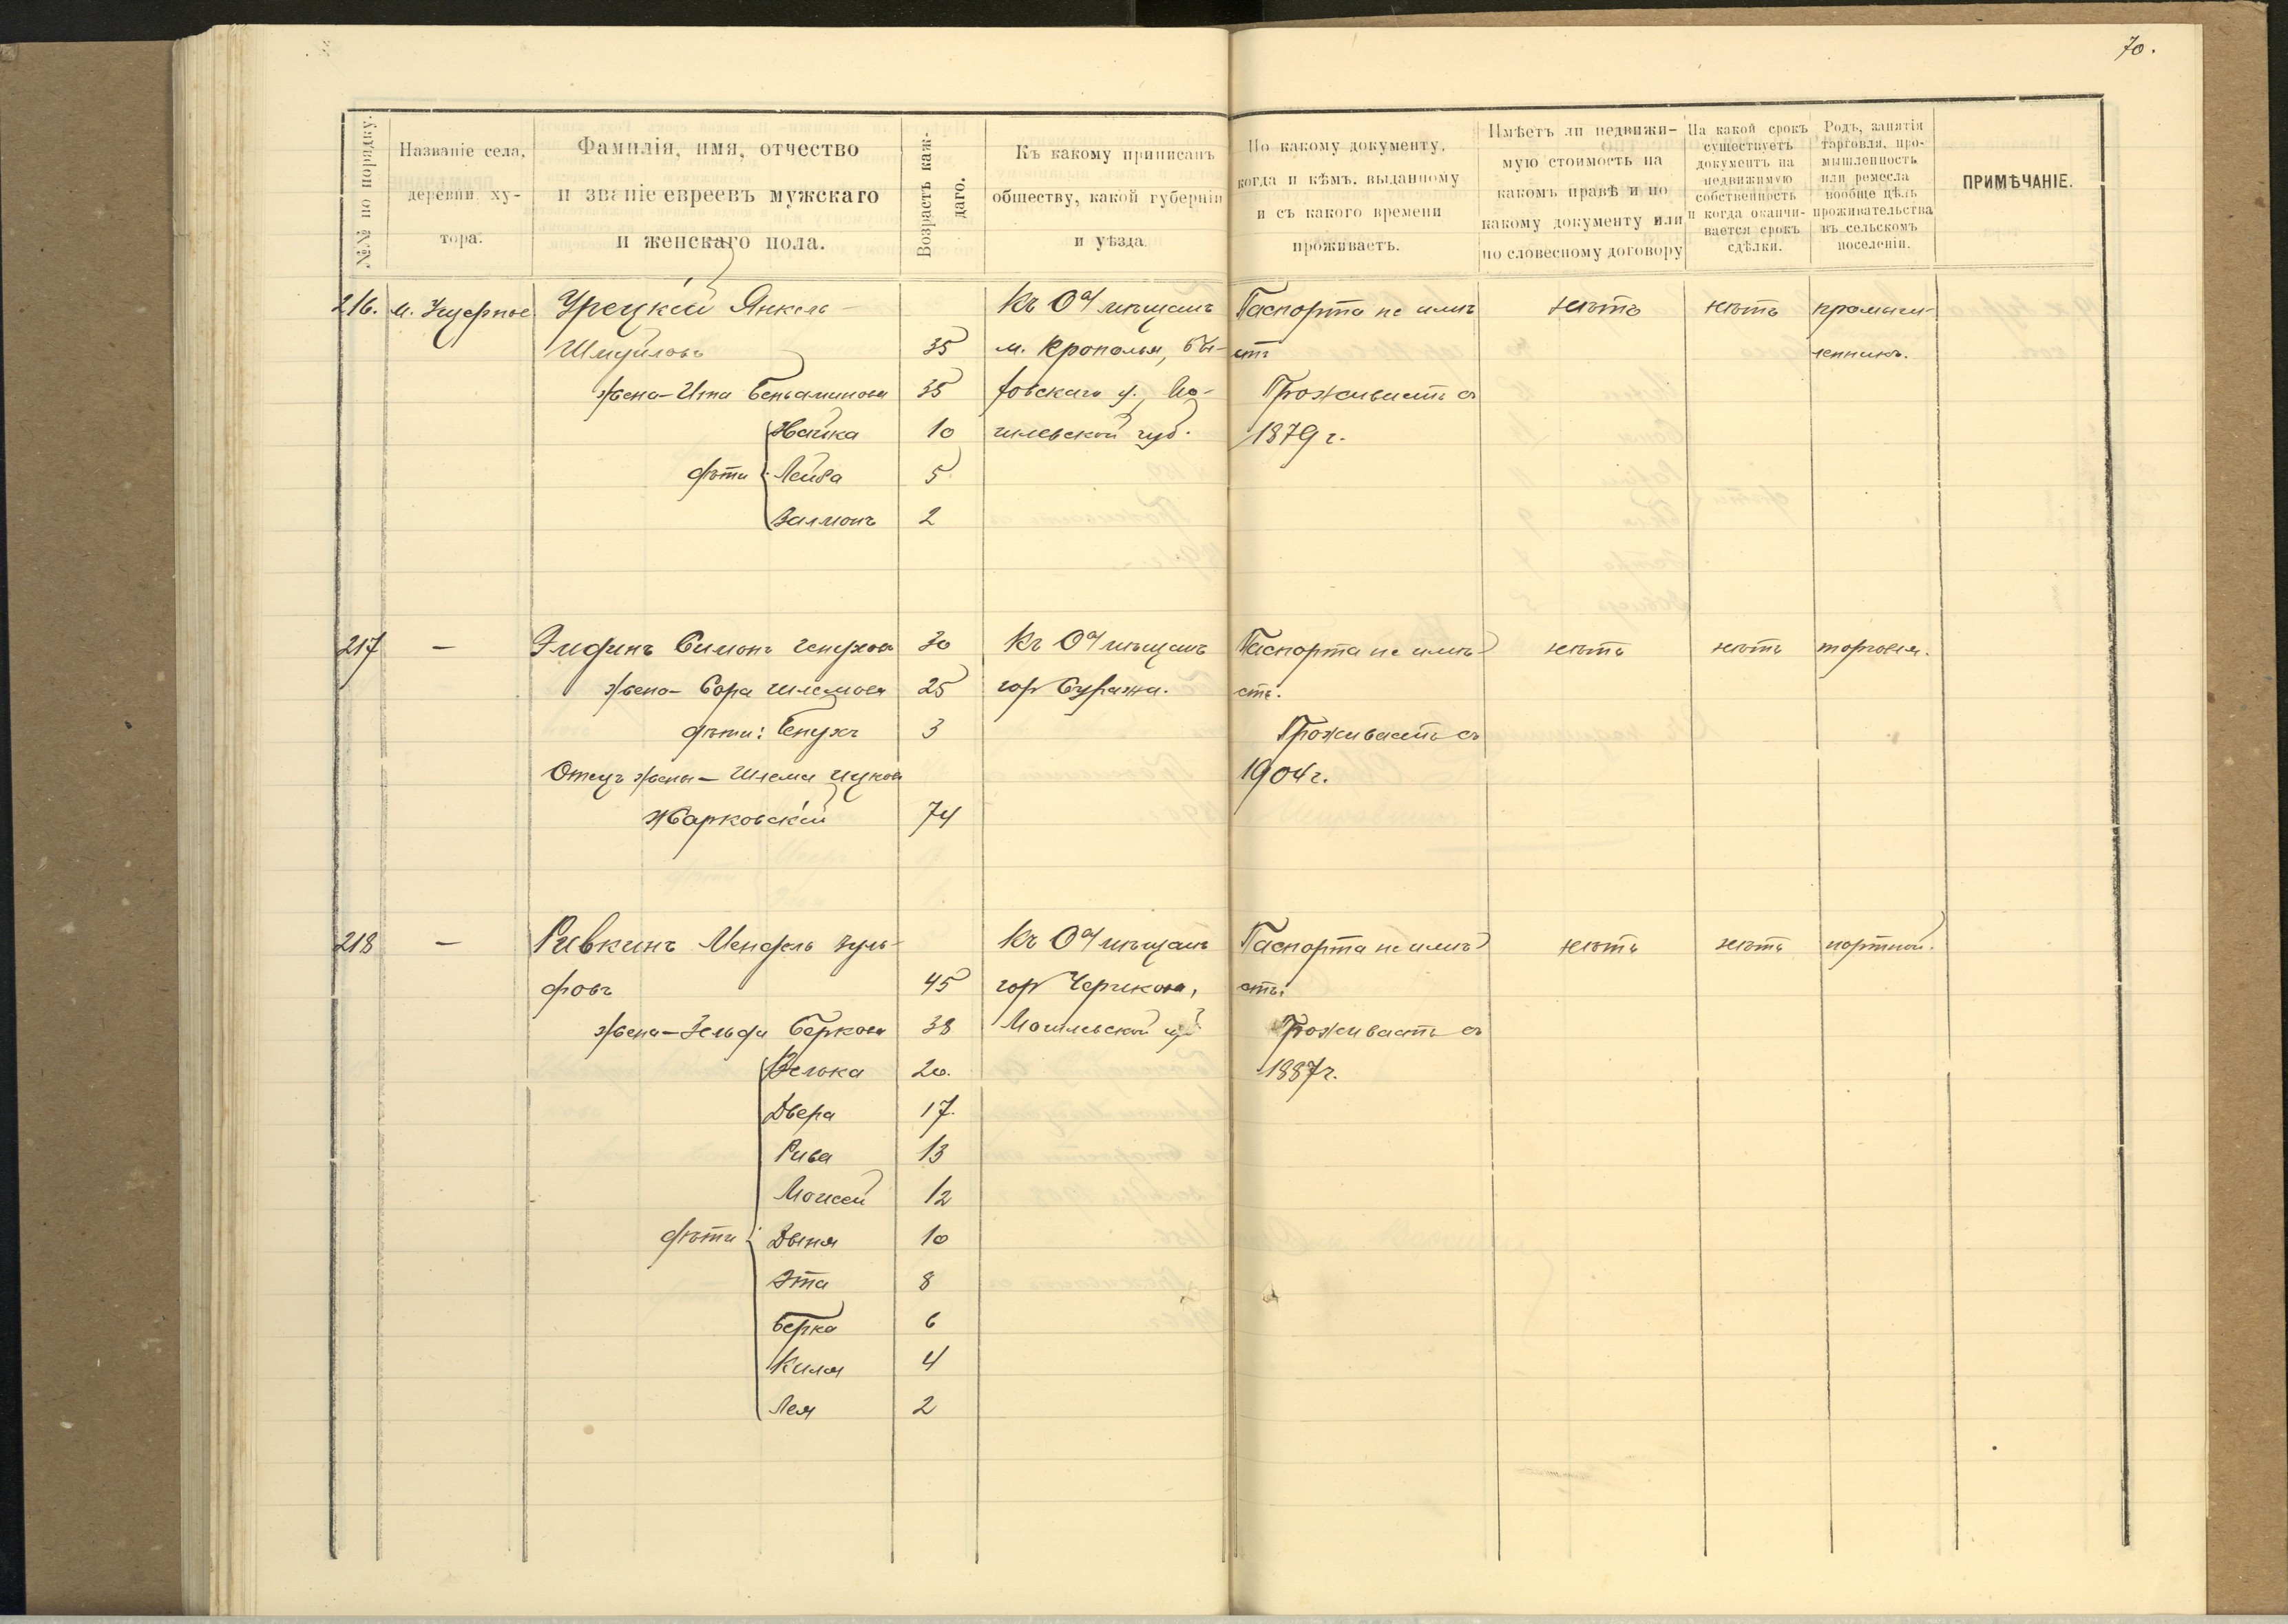 70.
№№ по порядку.
Названіе села, деревни, ху-тора.
Фамилія, имя, отчество
и званіе евреевъ мужскаго
и женскаго пола.
Возрастъ каж-даго.
Къ какому приписанъ
обществу, какой губерніи
и уѣзда.
По какому документу,
когда и кѣмъ, выданному
и съ какого времени
проживаетъ.
Имѣетъ ли недвижи-
мую стоимость на
какомъ правѣ и по
какому документу или
по словесному договору
На какой срокъ
существуетъ
документъ на
недвижимую
собственность
и когда оканчи-
вается срокъ
сдѣлки.
Родъ, занятія
торговля, про-
мышленность
или ремесла
вообще цѣль
проживательства
въ сельскомъ
поселеніи.
ПРИМѢЧАНІЕ.
216. м. Ущерпье Урецкій Янкель Къ О-ву мѣщанъ Паспорта не имѣ- нѣтъ нѣтъ промыш-
Шмуйловъ 35 м. Крополья, Бы- етъ ленникъ.
жена - Ита Беньаминова 35 ховскаго у., Мо- Проживаетъ съ
Хайка 10 гилевской губ. 1879 г.
дѣти Лейба 5
Залманъ 2
217 — Симонъ 30 Къ О-ву мѣщанъ Паспорта не имѣ- нѣтъ нѣтъ торговля.
жена - Сора Шлемова 25 гор Суража. етъ.
дѣти: 3 Проживаетъ съ
Отецъ жены - Шлема Ицковъ 1904 г.
Жарковскій 74
218 — Ривкинъ Мендель Зуль- Къ О-ву мѣщанъ Паспорта не имѣ- нѣтъ нѣтъ портной.
фовъ 45 гор Черикова, етъ.
жена - Зельда Беркова 38 Могилевской губ Проживаетъ съ
20. 1887 г.
Двера 17.
Рива 13
Моисей 12
дѣти Двеня 10
Эта 8
Берка 6
Киля 4
Лея 2